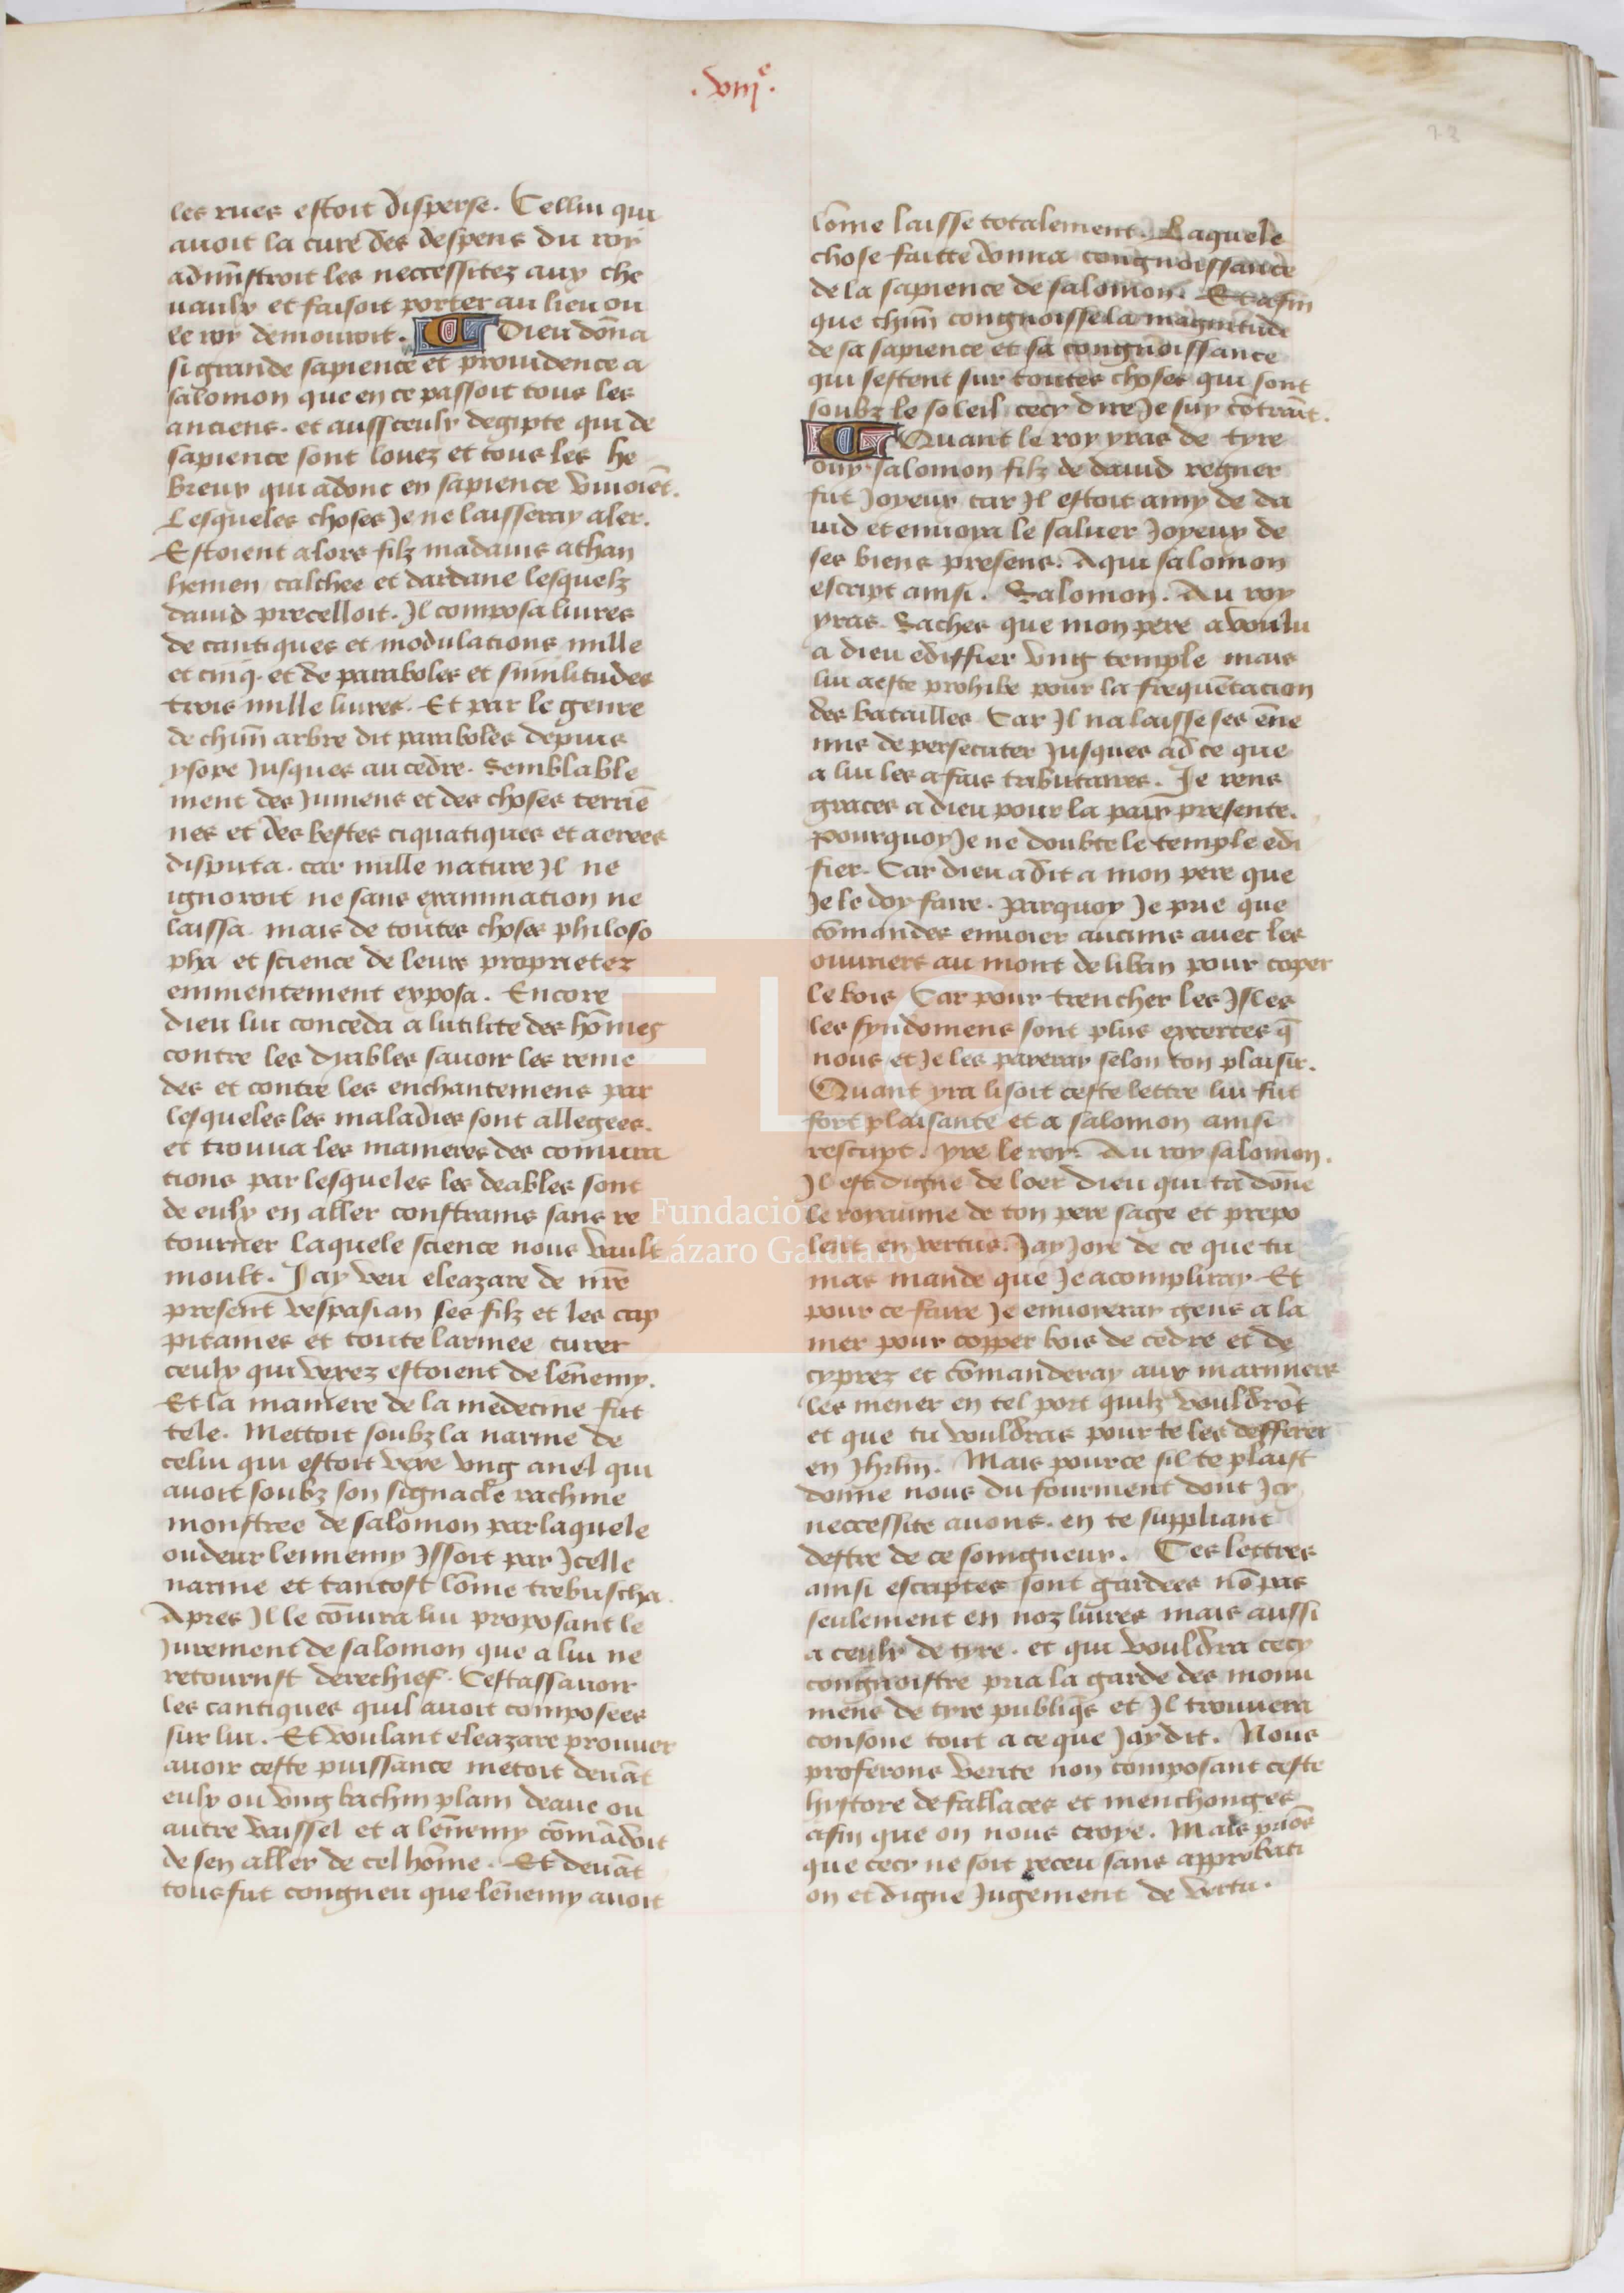 .viije.
les rues estoit disperse. Cellui qui
auoit la cure des despens du roy
administroit les neccessitez aux che
uaulx et faisoit porter au lieu ou
le roy demouroit. Dieu dōna
si grande sapience et prouidence a
salomon que en ce passoit tous les
anciens. et auss ceulx degipte qui de
sapience sont louez et tous les he
breux qui adonc en sapience viuoiēt.
Lesqueles choses Je ne laisseray aler.
Estoient alors filz madains athan
hemen calchee et dardane lesquelz
dauid precelloit. Il composa liures
de cantiques et modulations mille
et cinq. et de paraboles et similitudes
trois mille liures. Et par le genre
de chūn arbre dit paraboles depuis
ysope Jusques au cedre. Semblable
ment des Jumens et des choses terriē
nes et des bestes aquatiques et aerees
disputa. car nulle nature Il ne
ignoroit ne sans examination ne
laissa. mais de toutes choses philoso
pha et science de leurs proprietez
eminentement exposa. Encore
dieu lui conceda a lutilite des hōmes
contre les dyables sauoir les reme
des et contre les enchantemens par
lesqueles les maladies sont allegees.
et trouua les manieres des coniura
tions par lesqueles les deables sont
de eulx en aller constrains sans re
tourner laquele science nous vault
moult. Jay veu eleazare de nr̄e
present vespasian ses filz et les cap
pitaines et toute larmee curer
ceulx qui vexez estoient de lēnemy.
Et la maniere de la medecine fut
tele. Mettoit soubz la narine de
celui qui estoit vexe vng anel qui
auoit soubz son signacle rachine
monstree de salomon par laquele
oudeur lennemy Jssoit par Jcelle
narine et tantost lōme trebuscha.
Apres Il le cōiura lui proposant le
Jurement de salomon que a lui ne
retournst derechief. Cestassauoir
les cantiques quil auoit composees
sur lui. Et voulant eleazare prouuer
auoir ceste puissance metoit deuāt
eulx ou vng bachin plain deaue ou
autre vaissel et a lēnemy cōmādoit
de sen aller de cel hōme. Et deuāt
tous fut congneu que lēnemy auoit
lōme laisse totalement. Laquele
chose faitte donna congnoissance
de la sapience de salomon. Et afin
que chūn congnoisse la magnitude
de sa sapience et sa congnoissance
qui sestent sur toutes choses qui sont
soubz le soleil cecy dire Je suy cōtraīt.
Quant le roy yras de tyre
ouy salomon filz de dauid regner
fut Joyeux car Il estoit amy de da
uid et enuoya le saluer Joyeux de
ses biens presens. A qui salomon
escript ainsi. Salomon. Au roy
yras. Saches que mon pere a voulu
a dieu ediffier vng temple mais
lui a este prohibe pour la frequētacion
des batailles Car Il na laisse ses ēne
mis de persecuter Jusques ad ce que
a lui les a fais tributaires. Je rens
graces a dieu pour la paix presente.
pourquoy Je ne doubte le temple edi
fier. Car dieu a dit a mon pere que
Je le doy faire. parquoy Je prie que
cōmandes enuoier aucuns auec les
ouuriers au mont de liban pour coper
le bois Car pour trencher les Jsles
les syndomens sont plus excerces q̄
nous et Je les paieray selon ton plaisir.
Quant yra lisoit ceste lettre lui fut
fort plaisante et a salomon ainsi
rescript. yre le roy. Au roy salomon.
Il est digne de loer dieu qui ta dōne
le royaume de ton pere sage et prepo
lent en vertus. Jay Joye de ce que tu
mas mande que Je acompliray Et
pour ce faire Je enuoyeray gens a la
mer pour copper bois de cedre et de
cyprez et cōmanderay aux mariniers
les mener en tel port quilz vouldrōt
et que tu vouldras pour te les defferer
en Jhrlm. Mais pource sil te plaist
donne nous du fourment dont Jcy
neccessite auons. en te suppliant
destre de ce soingneux. Ces lettres
ainsi escriptes sont gardees nō pas
seulement en noz liures mais aussi
a ceulx de tyre. et qui vouldra cecy
congnoistre pria la garde des monu
mens de tyre publiq̄s et Il trouuera
consone tout a ce que Jay dit. Nous
proferons verite non composant ceste
hystore de fallaces et menchonges
afin que on nous croye. Mais priōs
que cecy ne soit receu sans approbati
on et digne Jugement de vertu.
FLG
Fundación
Lázaro Galdiano